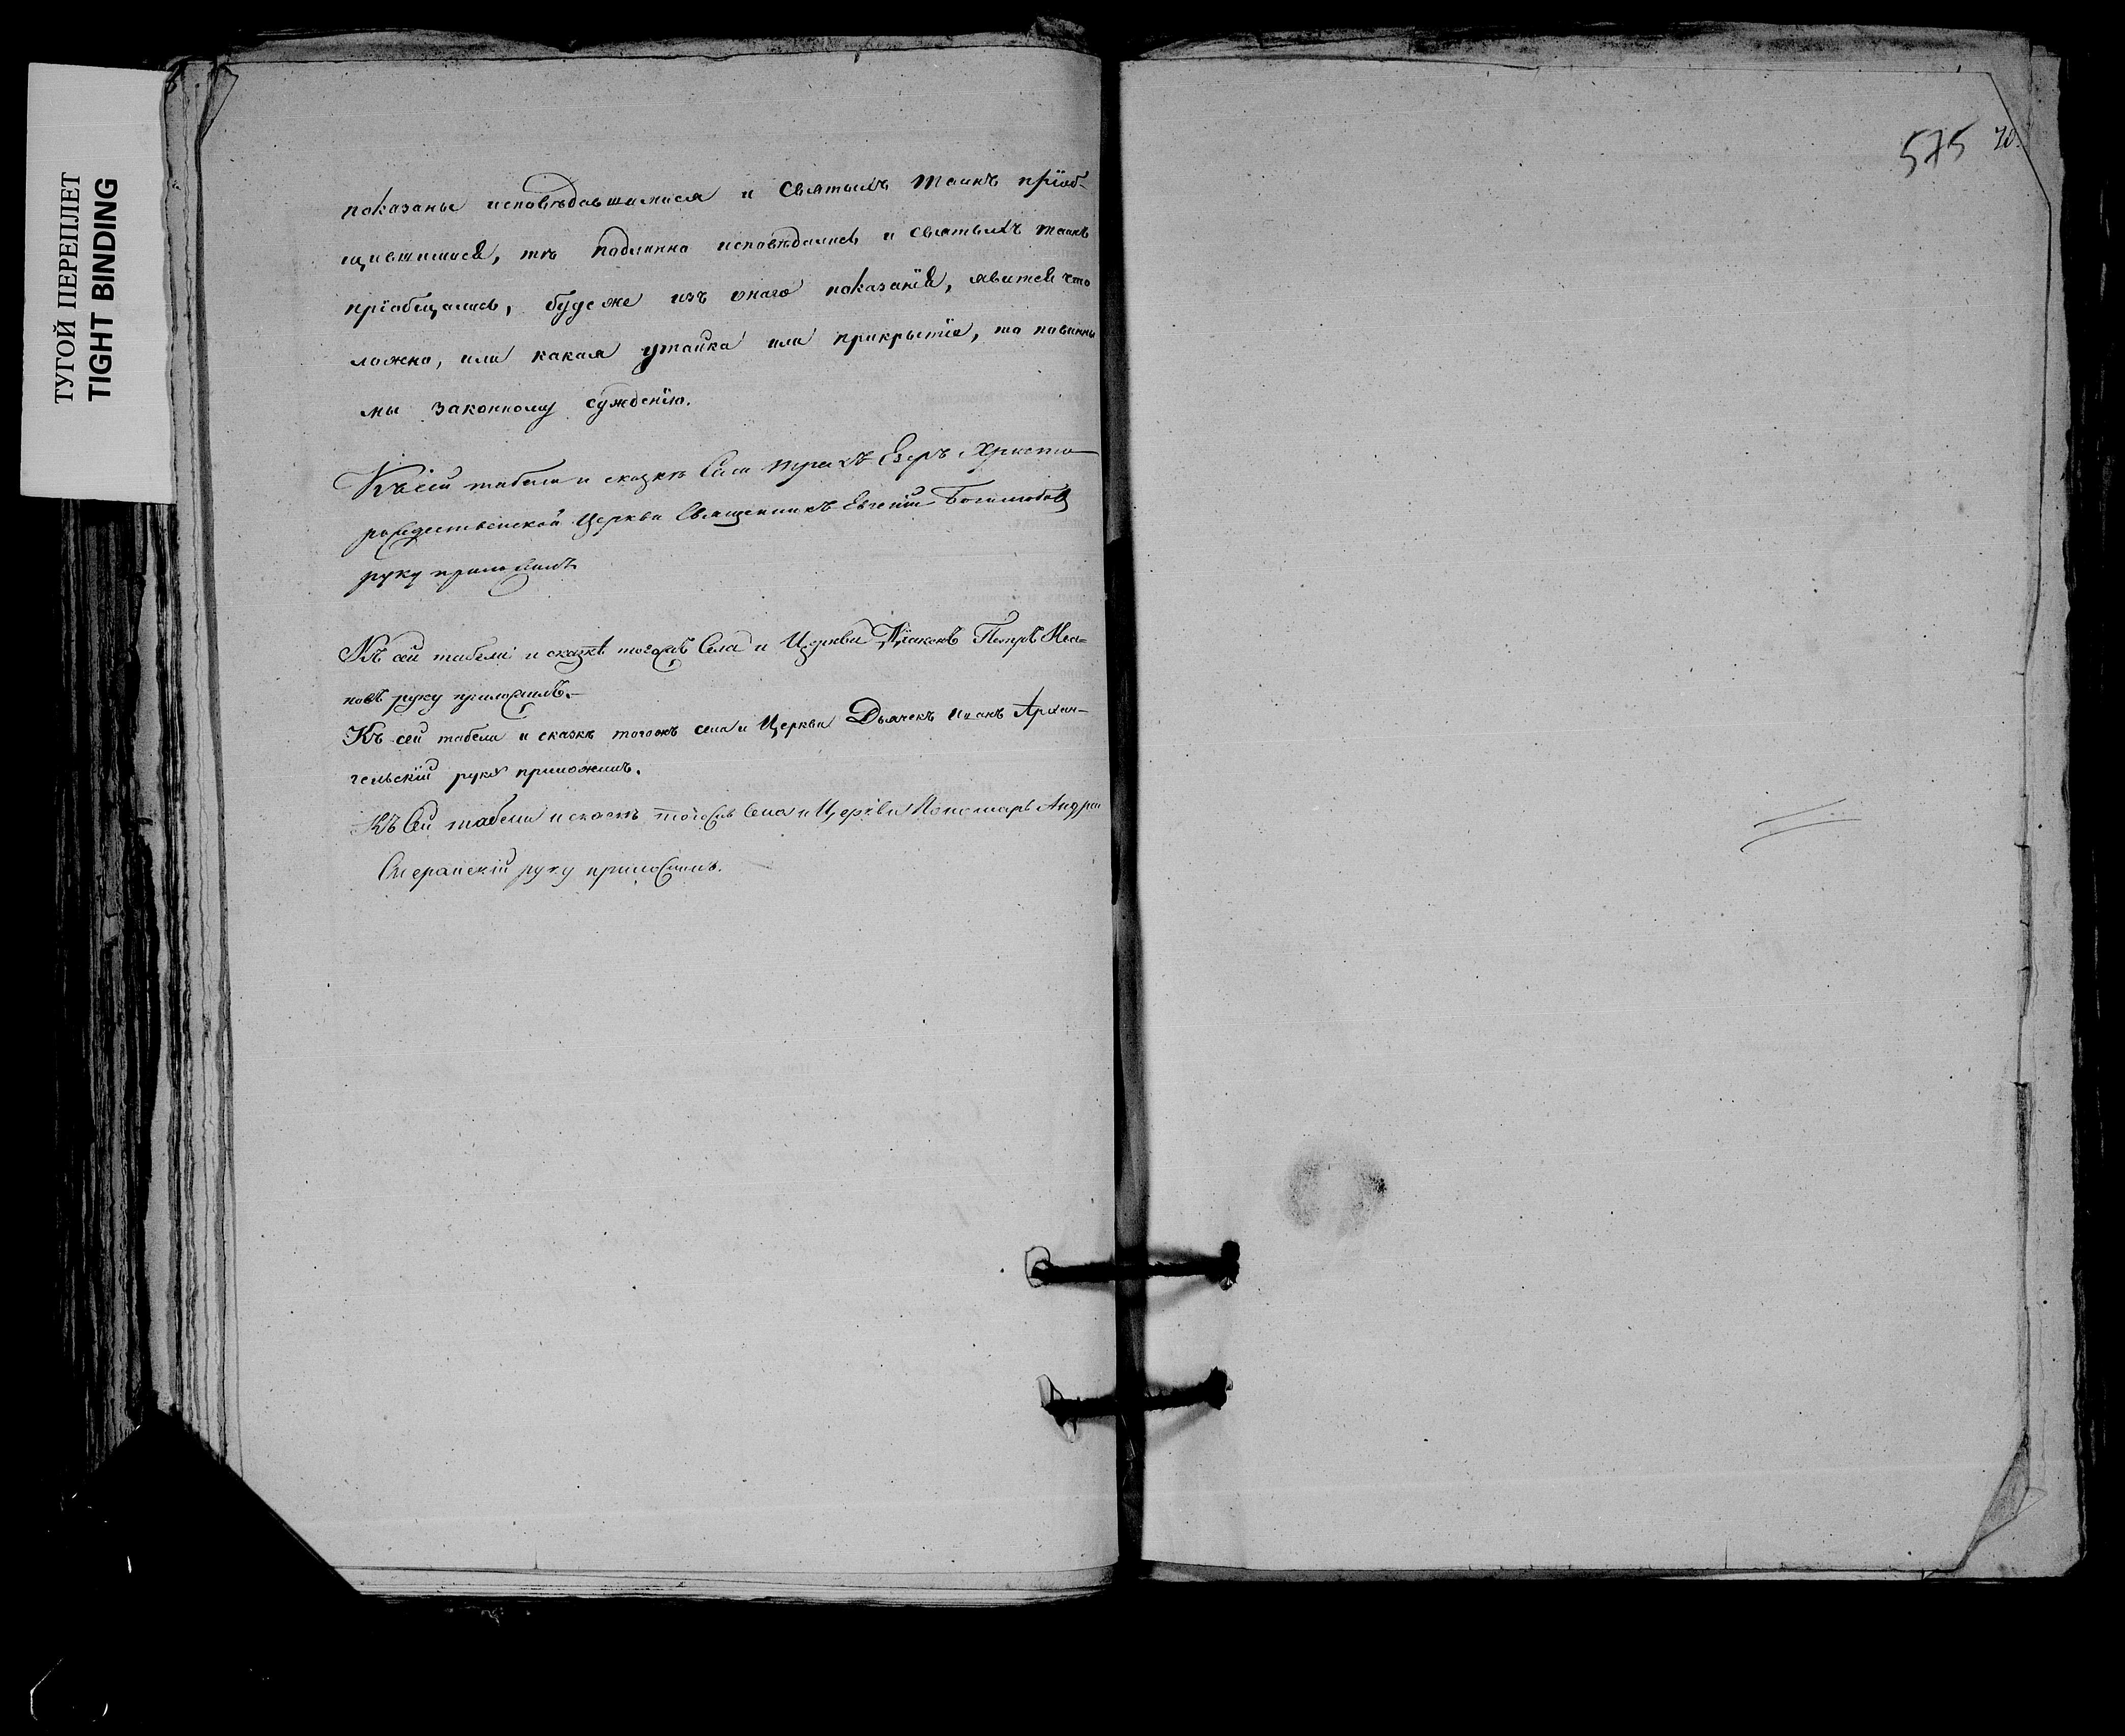 ТУГОЙ ПЕРЕПЛЕТ
TIGHT BINDING
575
показаны исповѣдавшимися и святыхъ таинъ пріоб-
щившимися, тѣ подлинно исповѣдались и святыхъ таинъ
пріобщались, будеже изъ онаго показанія, явится что
ложно, или какая утайка или прикрытіе, то повинны
мы законному сужденію.
Къ сей табели и сказкѣ Села Трехъ Езеръ Христо
рождественской Церкви Священникъ Евгеній Боголюбовъ
руку приложилъ
Къ сей табели и сказкѣ тогожъ Села и Церкви Діаконъ Петръ
новъ руку приложилъ.
Къ сей табели и сказкѣ тогожъ села и Церкви Дьячекъ Иванъ Архан-
гельскій руку приложилъ.
Къ сей табели и сказкѣ тогожъ села и Церкви Пономарь Андрей
Сперанскій руку приложилъ.